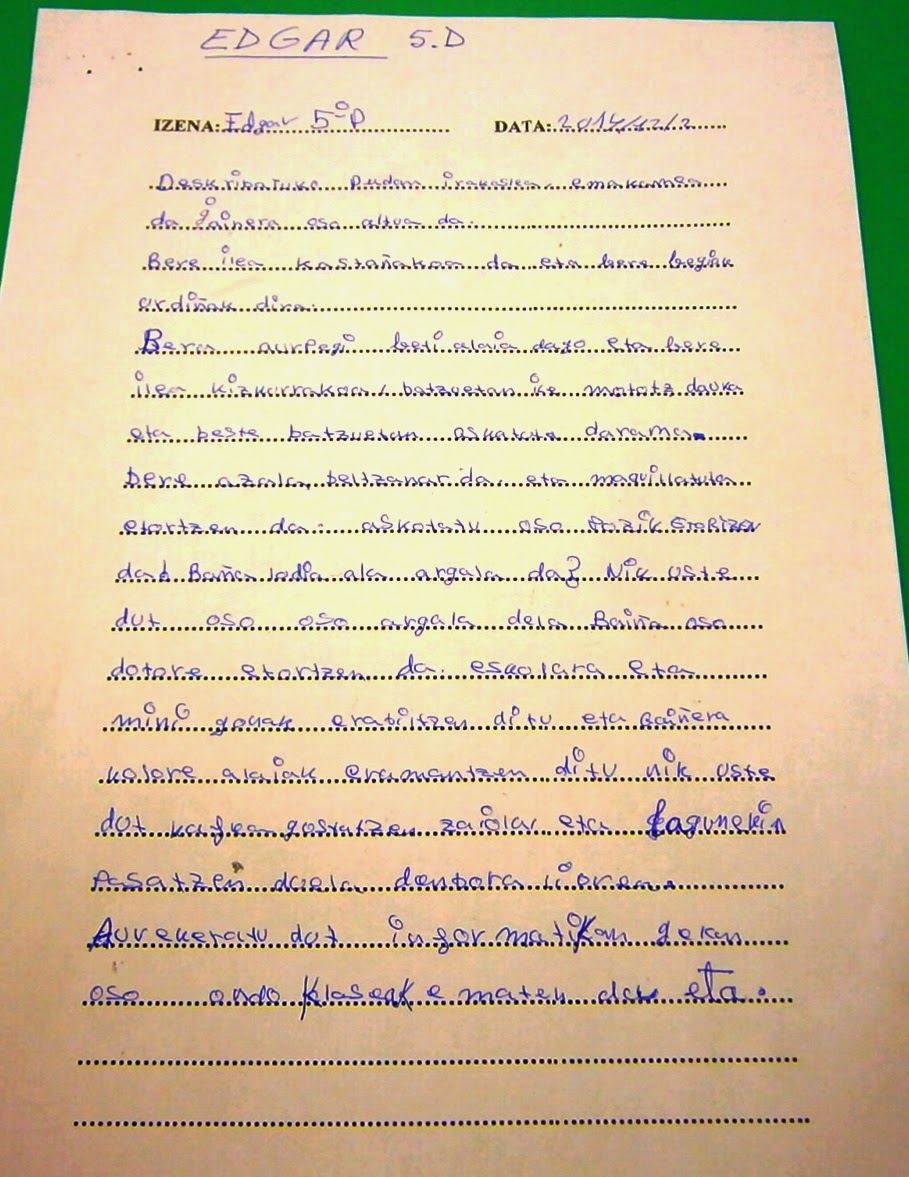 EDGAR 5.D
IZENA: Edgar 5ºD DATA: 2014/12/2
Deskribatuko dudan irakaslea, emakumea
da gainera oso altua da.
Bere ilea kastañakoa da eta bere begiak
urdiñak dira.
Beren aurpegi beti alaia dago eta bere
ilea kizkurrakoa, batzuetan ile motots dauka
eta beste batzuetan askatuta darama.
bere azala, beltzaran da, eta maquillatuta
etortzen da. askotatu oso etortzen
da! Baña lodia ala argala da? Nik uste
dut oso oso argala dela Baiña oso
dotore etortzen da. eskolara eta
mini gonak erabiltzen ditu eta Gaiñera
kolore alaiak eramantzen ditu nik uste
dut kafean gostatzen zaiola, eta lagunekin
Pasatzen duela denbora liorea.
Aurekeratu dut informatikan gekan
oso ondo klaseak ematen du eta.